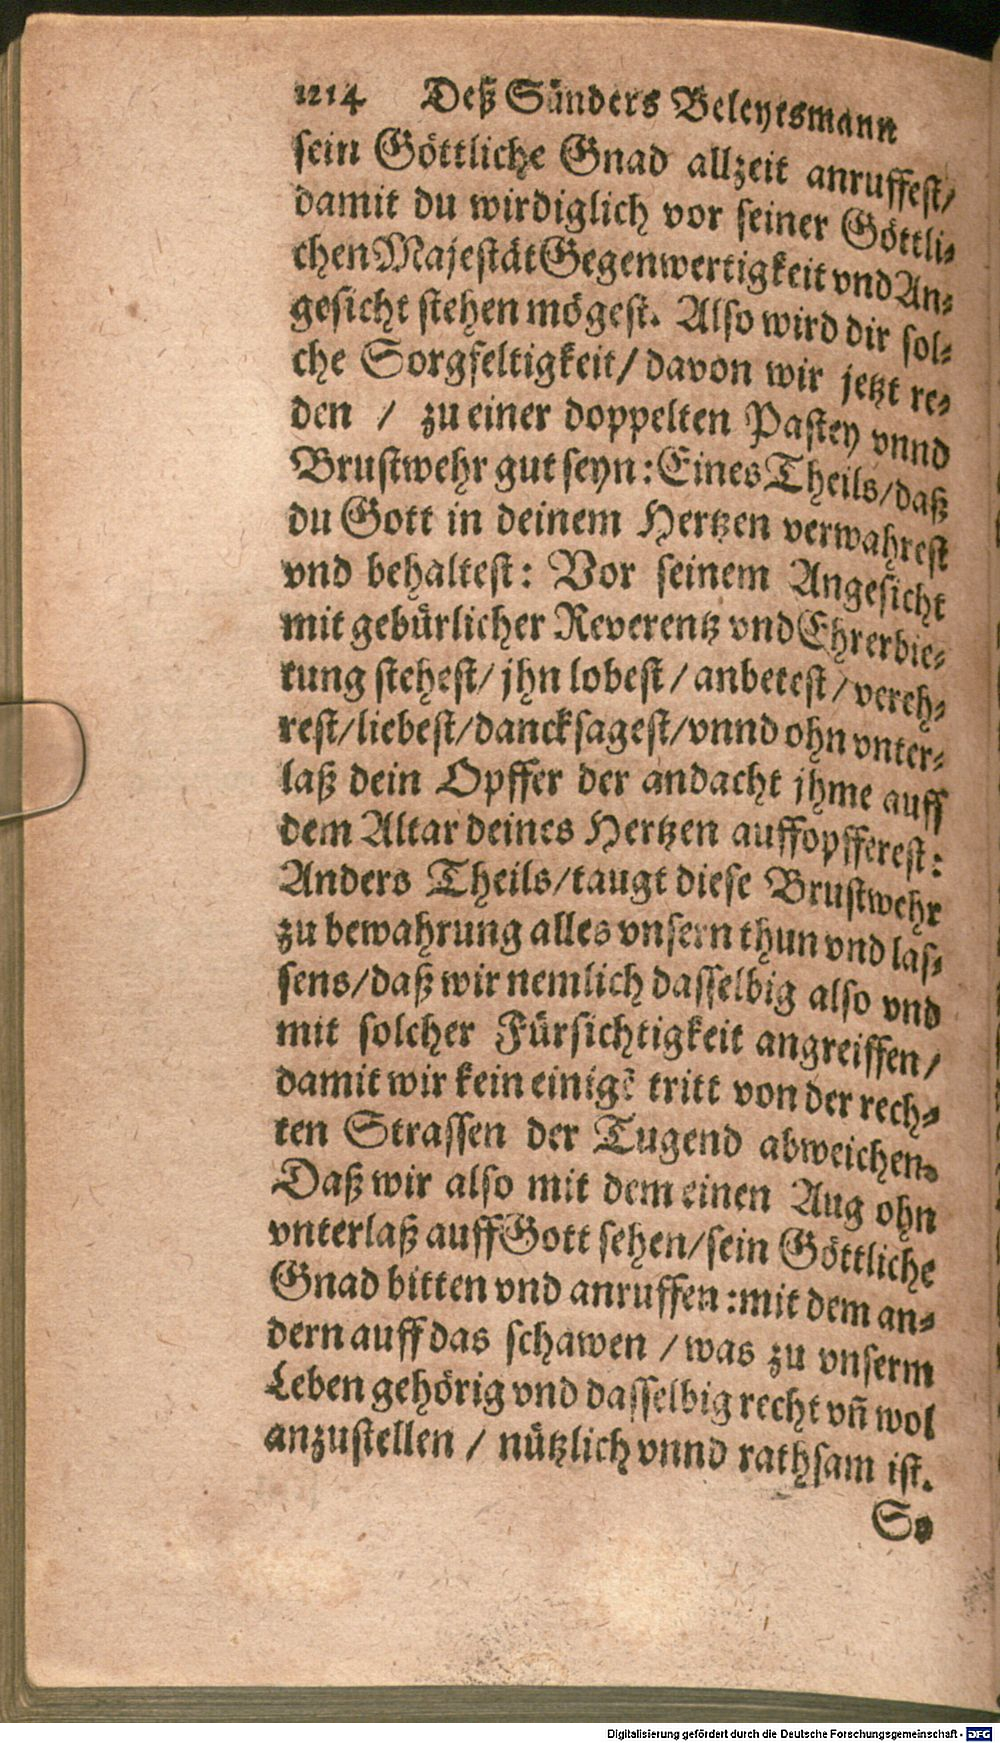 1214 Deß Sünders Beleytsmann
sein Göttliche Gnad allzeit anruffest/
damit du wirdiglich vor seiner Göttli-
chen Majestät Gegenwertigkeit vnd An-
gesicht stehen mögest. Also wird dir sol-
che Sorgfeltigkeit/ davon wir jetzt re-
den / zu einer doppelten Pastey vnnd
Brustwehr gut seyn: Eines Theils/ daß
du Gott in deinem Hertzen verwahrest
vnd behaltest: Vor seinem Angesicht
mit gebürlicher Reverentz vnd Ehrerbie-
tung stehest/ jhn lobest / anbetest / vereh-
rest/ liebest/ dancksagest/ vnnd ohn vnter-
laß dein Opffer der andacht jhme auff
dem Altar deines Hertzen auffopfferest:
Anders Theils/ taugt diese Brustwehr
zu bewahrung alles vnsern thun vnd las-
sens/ daß wir nemlich dasselbig also vnd
mit solcher Fürsichtigkeit angreiffen/
damit wir kein einigẽ tritt von der rech-
ten Strassen der Tugend abweichen.
Daß wir also mit dem einen Aug ohn
vnterlaß auff Gott sehen/ sein Göttliche
Gnad bitten vnd anruffen: mit dem an-
dern auff das schawen / was zu vnserm
Leben gehörig vnd dasselbig recht vñ wol
anzustellen / nützlich vnnd rathsam ist.
So
Digitalisierung gefördert durch die Deutsche Forschungsgemeinschaft - DFG